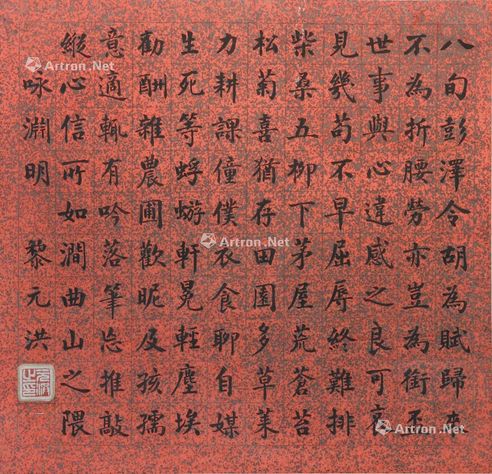 八旬彭澤令胡為賦歸来
不為折腰勞亦豈為銜杯
世事與心違感之良可哀
見幾苟不早屈辱終難排
柴桑五柳下茅屋荒蒼苔
松菊喜猶存田園多草萊
力耕課僮僕衣食聊自媒
生死等蜉蝣軒冕輕塵埃
勸酬雜農圃歡昵及孩孺
意適輒有吟落筆忘推敲
縱心信所如澗曲山之隈
咏淵明 黎元洪
Artron.Net
Artron.Net
Artron.Net
Artron.Net